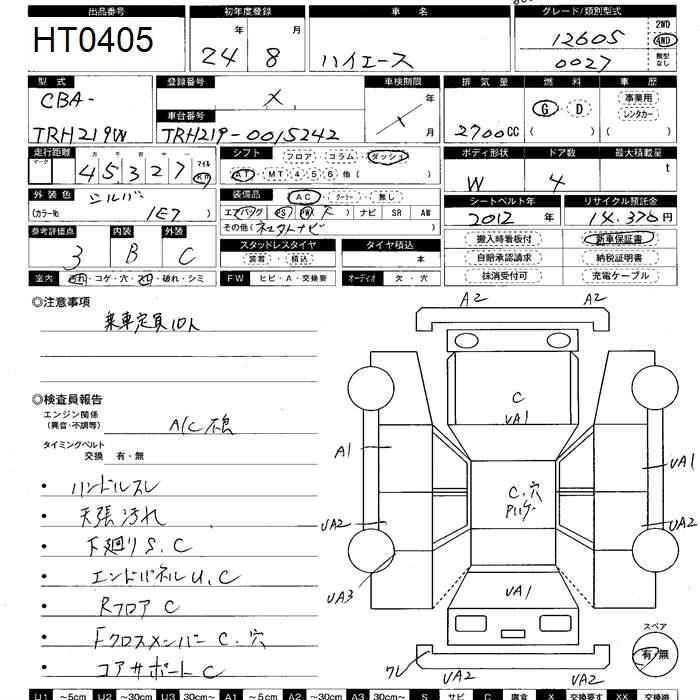 出品番号 初年度登録 車名 グレード/類別型式
HT0405 24年8月 ハイエース 12605 2WD 4WD
0027 類型なし
型式 登録番号 車検期限 排気量 燃料 車歴
CBA- × 年 G・D 事業用
車台番号 レンタカー
TRH219W TRH219-0015242 月 2700CC ( ) ( )
走行距離 シフト フロア・コラム・ダッシュ ボディ形状 ドア数 最大積載量
マーク 十 万 千 百 マイル
45327 km AT・MT 4 5 6 他( ) W 4 t
外装色 シルバ 装備品 AC・クーラー・無し シートベルト年 リサイクル預託金
(カラーNo. 1E7) エアバッグ PS PW ナビ SR AW 2012年 14,370円
その他(
参考評価点 内装 外装 スタッドレスタイヤ タイヤ積込 搬入時看板付 新車保証書
3 B C 装着・積込 本 自賠承認請求 納税証明書
室内 汚れ・コゲ・穴・スレ・破れ・シミ FW ヒビ・A・交換要 オーディオ 欠・穴 抹消受付可 充電ケーブル
◎注意事項
乗車定員10人
◎検査員報告
エンジン関係
(異音・不調等) A/C不鳴
タイミングベルト
交換 有・無
・ハンドルスレ
・天張汚れ
・下廻りS、C
・エンドパネルU、C
・Rフロア C
・Fクロスメンバー C、穴
・コアサポート C
A2 A2
C
UA1
A1 UA1
C、穴
UA2 UA2
UA3 UA1
スペア
有/無
ワレ UA2 UA2
U1 ~5cm U2 ~30cm U3 30cm~ A1 ~5cm A2 ~30cm A3 30cm~ S サビ C 腐食 X 交換要す XX 交換跡